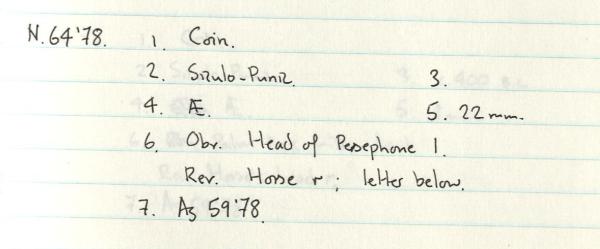 N.64'78. 1. Coin.
2. Siculo-Punic. 3.
4. Æ. 5. 22 mm.
6. Obv. Head of Persephone l.
Rev. Horse r; letter below.
7. As 59'78.